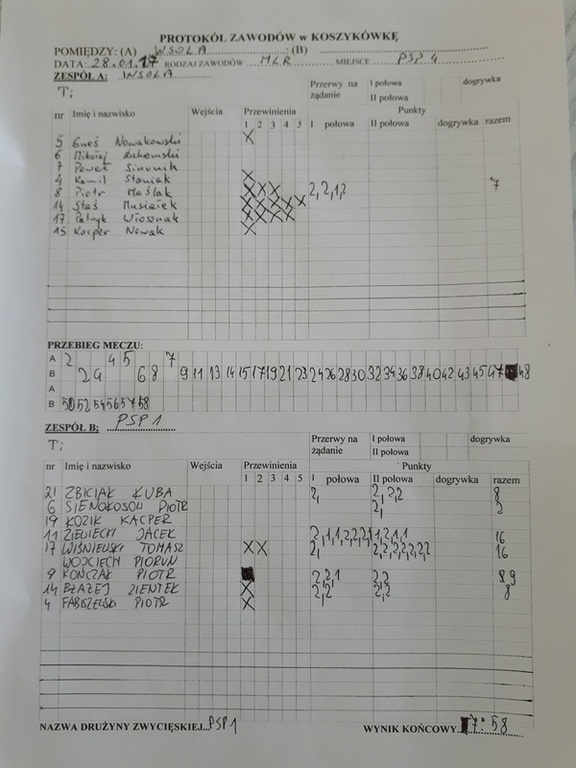 PROTOKÓŁ ZAWODÓW w KOSZYKÓWKĘ
POMIĘDZY: (A) WSOLA (B)
DATA: 28.01.17 RODZAJ ZAWODÓW MLR MIEJSCE PSP 4
ZESPÓŁ A: WSOLA
T; Przerwy na żądanie I połowa II połowa dogrywka
nr Imię i nazwisko Wejścia Przewinienia 1 2 3 4 5 Punkty I połowa II połowa dogrywka razem
5 Nowakowski X
6 Mikołaj
7 Paweł
4 Kamil Staniak X
8 Piotr Maślak X X X 2, 2, 1, 2 7
14 Staś Musiałek X X X X X
17 Patryk Włosznak X X X X
15 Kacper Nowak X
PRZEBIEG MECZU:
A 2 4 5 7
B 2 4 6 8 9 11 13 14 15 17 19 21 23 24 26 28 30 32 34 36 38 40 42 43 45 47 48
A
B 50 52 54 56 57 58
ZESPÓŁ B: PSP 1
T; Przerwy na żądanie I połowa II połowa dogrywka
nr Imię i nazwisko Wejścia Przewinienia 1 2 3 4 5 Punkty I połowa II połowa dogrywka razem
21 ZBICIAK KUBA 2, 2, 2, 2 8
6 PIOTR 2, 2
19 KOZIK KACPER
11 ZIELIECKI JACEK 2, 1, 1, 2, 2, 2, 2, 1, 1, 2, 1, 1 16
17 WIŚNIEWSKI TOMASZ X X 2, 2, 2, 2, 2, 2, 2, 2 16
WOJCIECH PIORUN
9 KOŃCZAK PIOTR 2, 2, 1 2, 2 8 9
14 BŁAŻEJ ZIENTEK X 2, 2 2, 2 8
4 FABISZEWSKI PIOTR X
NAZWA DRUŻYNY ZWYCIĘSKIEJ PSP 1 WYNIK KOŃCOWY 7:58